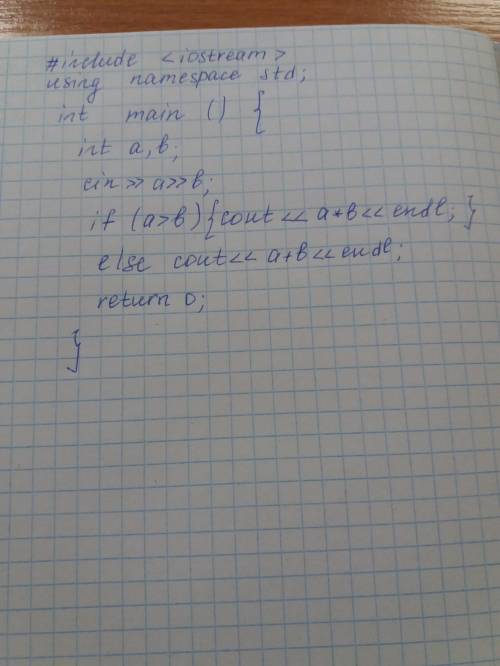 #include <iostream>
using namespace std;
int main () {
int a,b;
cin>>a>>b;
if (a>b){cout<<a*b<<endl;}
else cout<<a+b<<endl;
return 0;
}